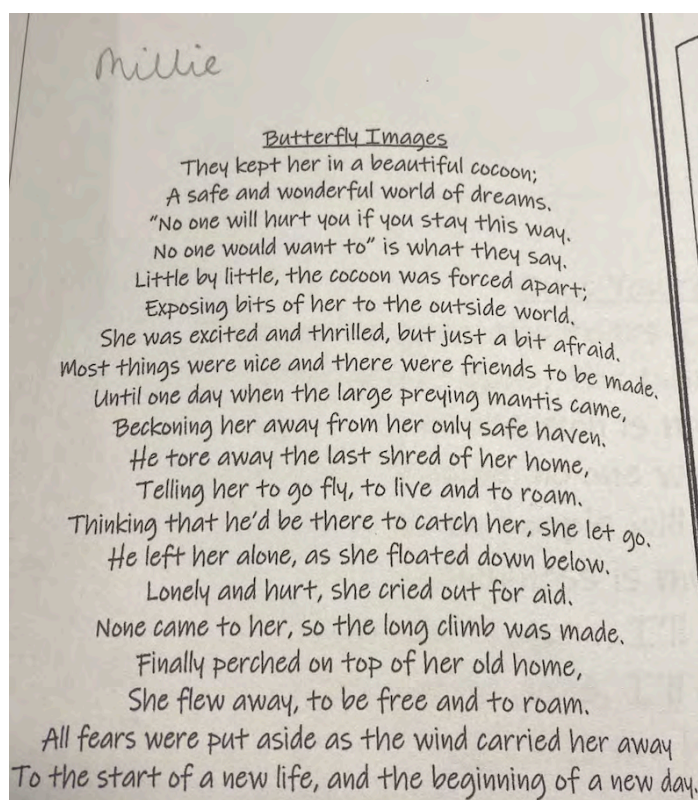 Millie
Butterfly Images
They kept her in a beautiful cocoon;
A safe and wonderful world of dreams.
"No one will hurt you if you stay this way.
No one would want to" is what they say.
Little by little, the cocoon was forced apart;
Exposing bits of her to the outside world.
She was excited and thrilled, but just a bit afraid.
Most things were nice and there were friends to be made.
Until one day when the large preying mantis came,
Beckoning her away from her only safe haven.
He tore away the last shred of her home,
Telling her to go fly, to live and to roam.
Thinking that he'd be there to catch her, she let go.
He left her alone, as she floated down below.
Lonely and hurt, she cried out for aid.
None came to her, so the long climb was made.
Finally perched on top of her old home,
She flew away, to be free and to roam.
All fears were put aside as the wind carried her away
To the start of a new life, and the beginning of a new day.